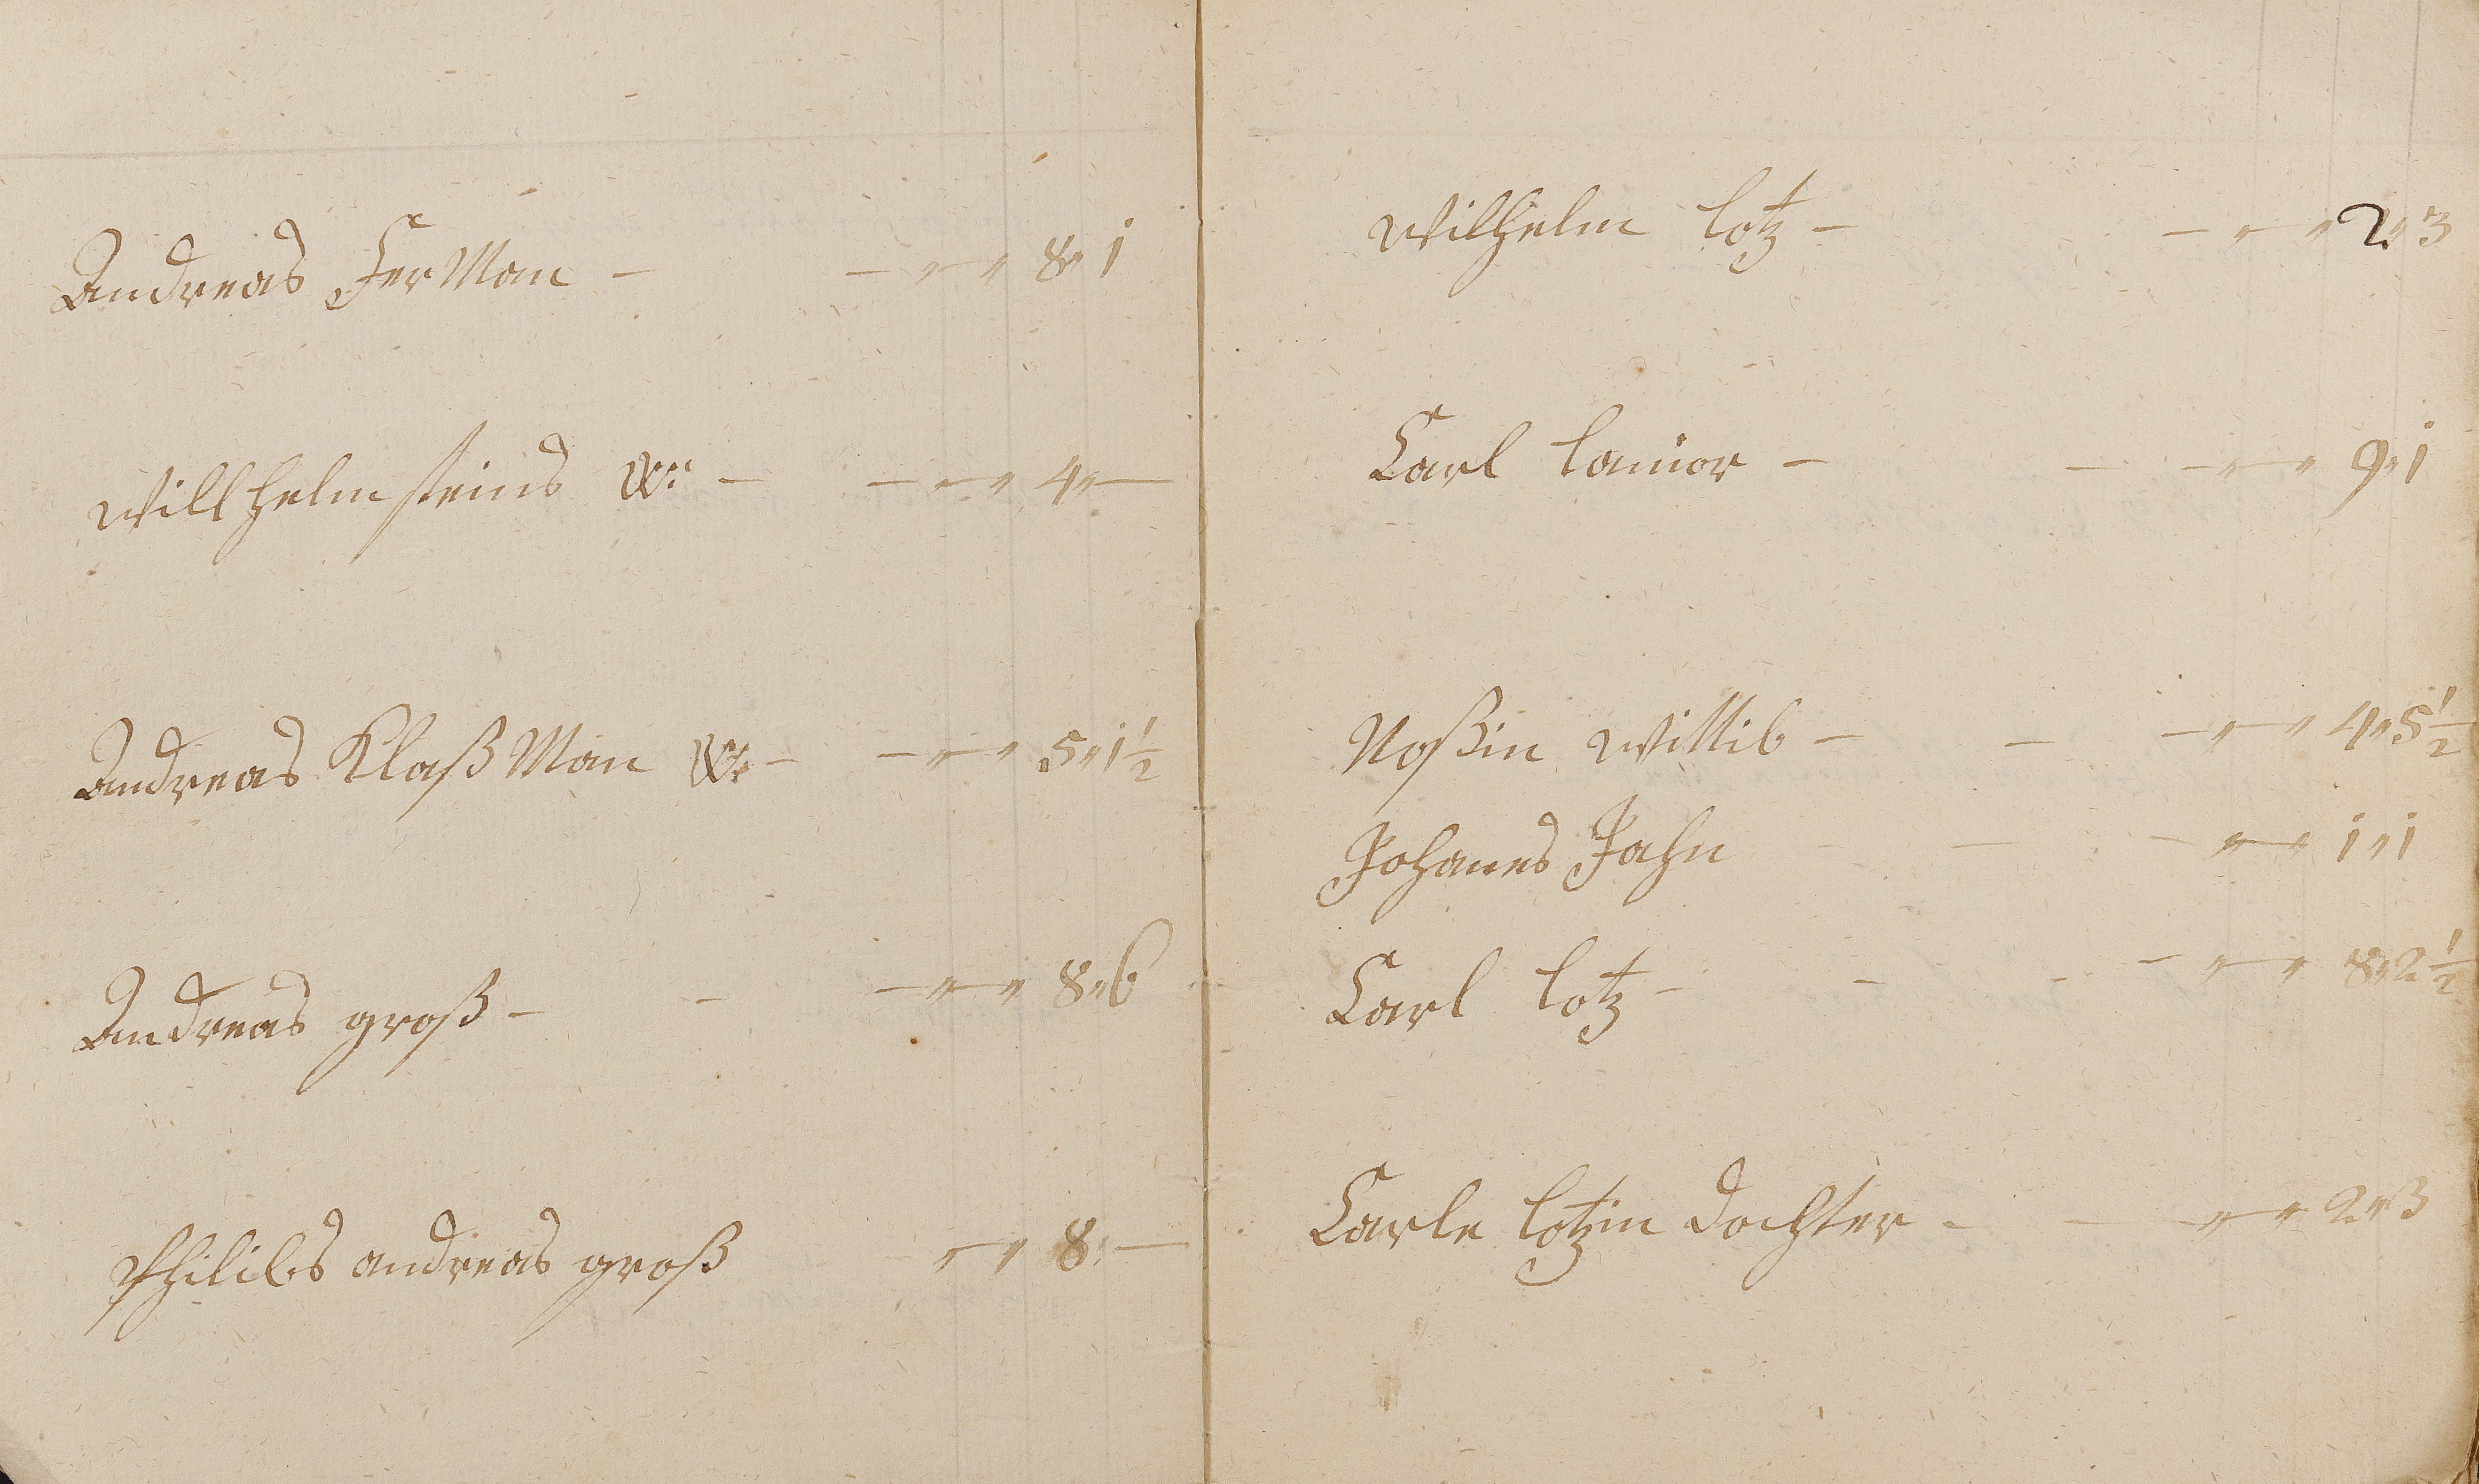 Andreas Herman - - „ - „ 8 „ 1
Willhelm steins W: - - „ - „ 4 „ -
Andreas Klaß Man W: - - „ - „ 5 „ 1½
Andreas groß - - - „ - „ 8 „ 6
Philibs andreas groß „ - „ 8 „ -
Wilhelm lotz - - „ - „ 2 „ 3
Carl - - - „ - „ 9 „ 1
Noßin Wittib - - - „ - „ 4 „ 5½
Johanes Jahn - - - „ - „ 1 „ 1
Carl lotz - - - - „ - „ 8 „ 2½
Carle lotzin dochter - - - „ - „ 2 „ 3